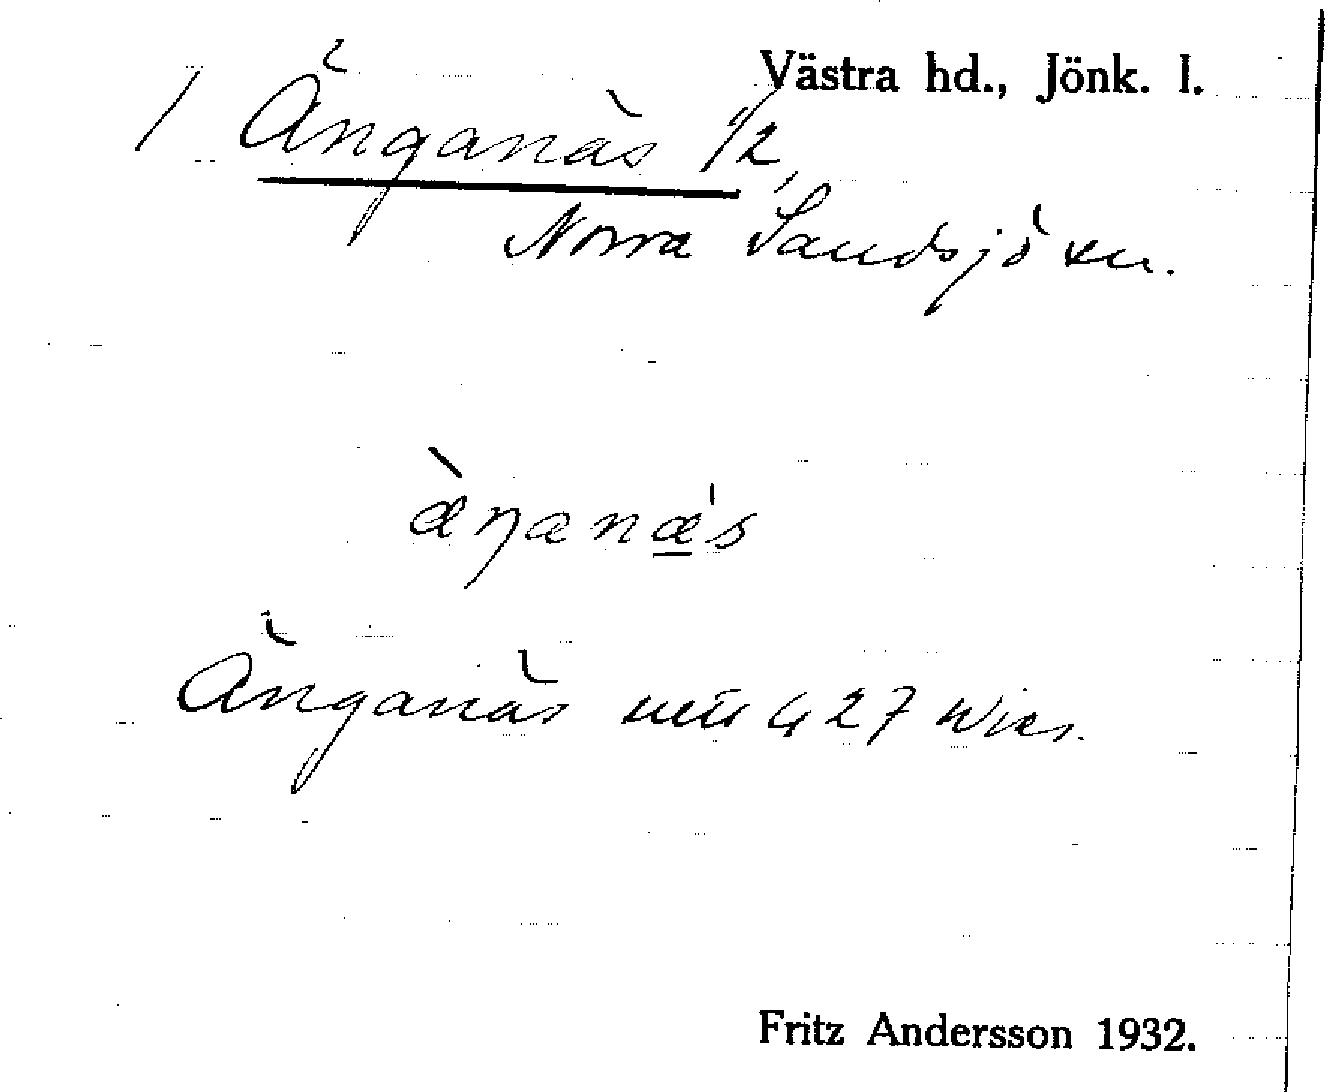 Västra hd., Jönk. l.
/ Änganäs 1/2,
Norra Sandsjö sn.
æ̀ŋanæ´s
Änganäs 427 Wies.
Fritz Andersson 1932.